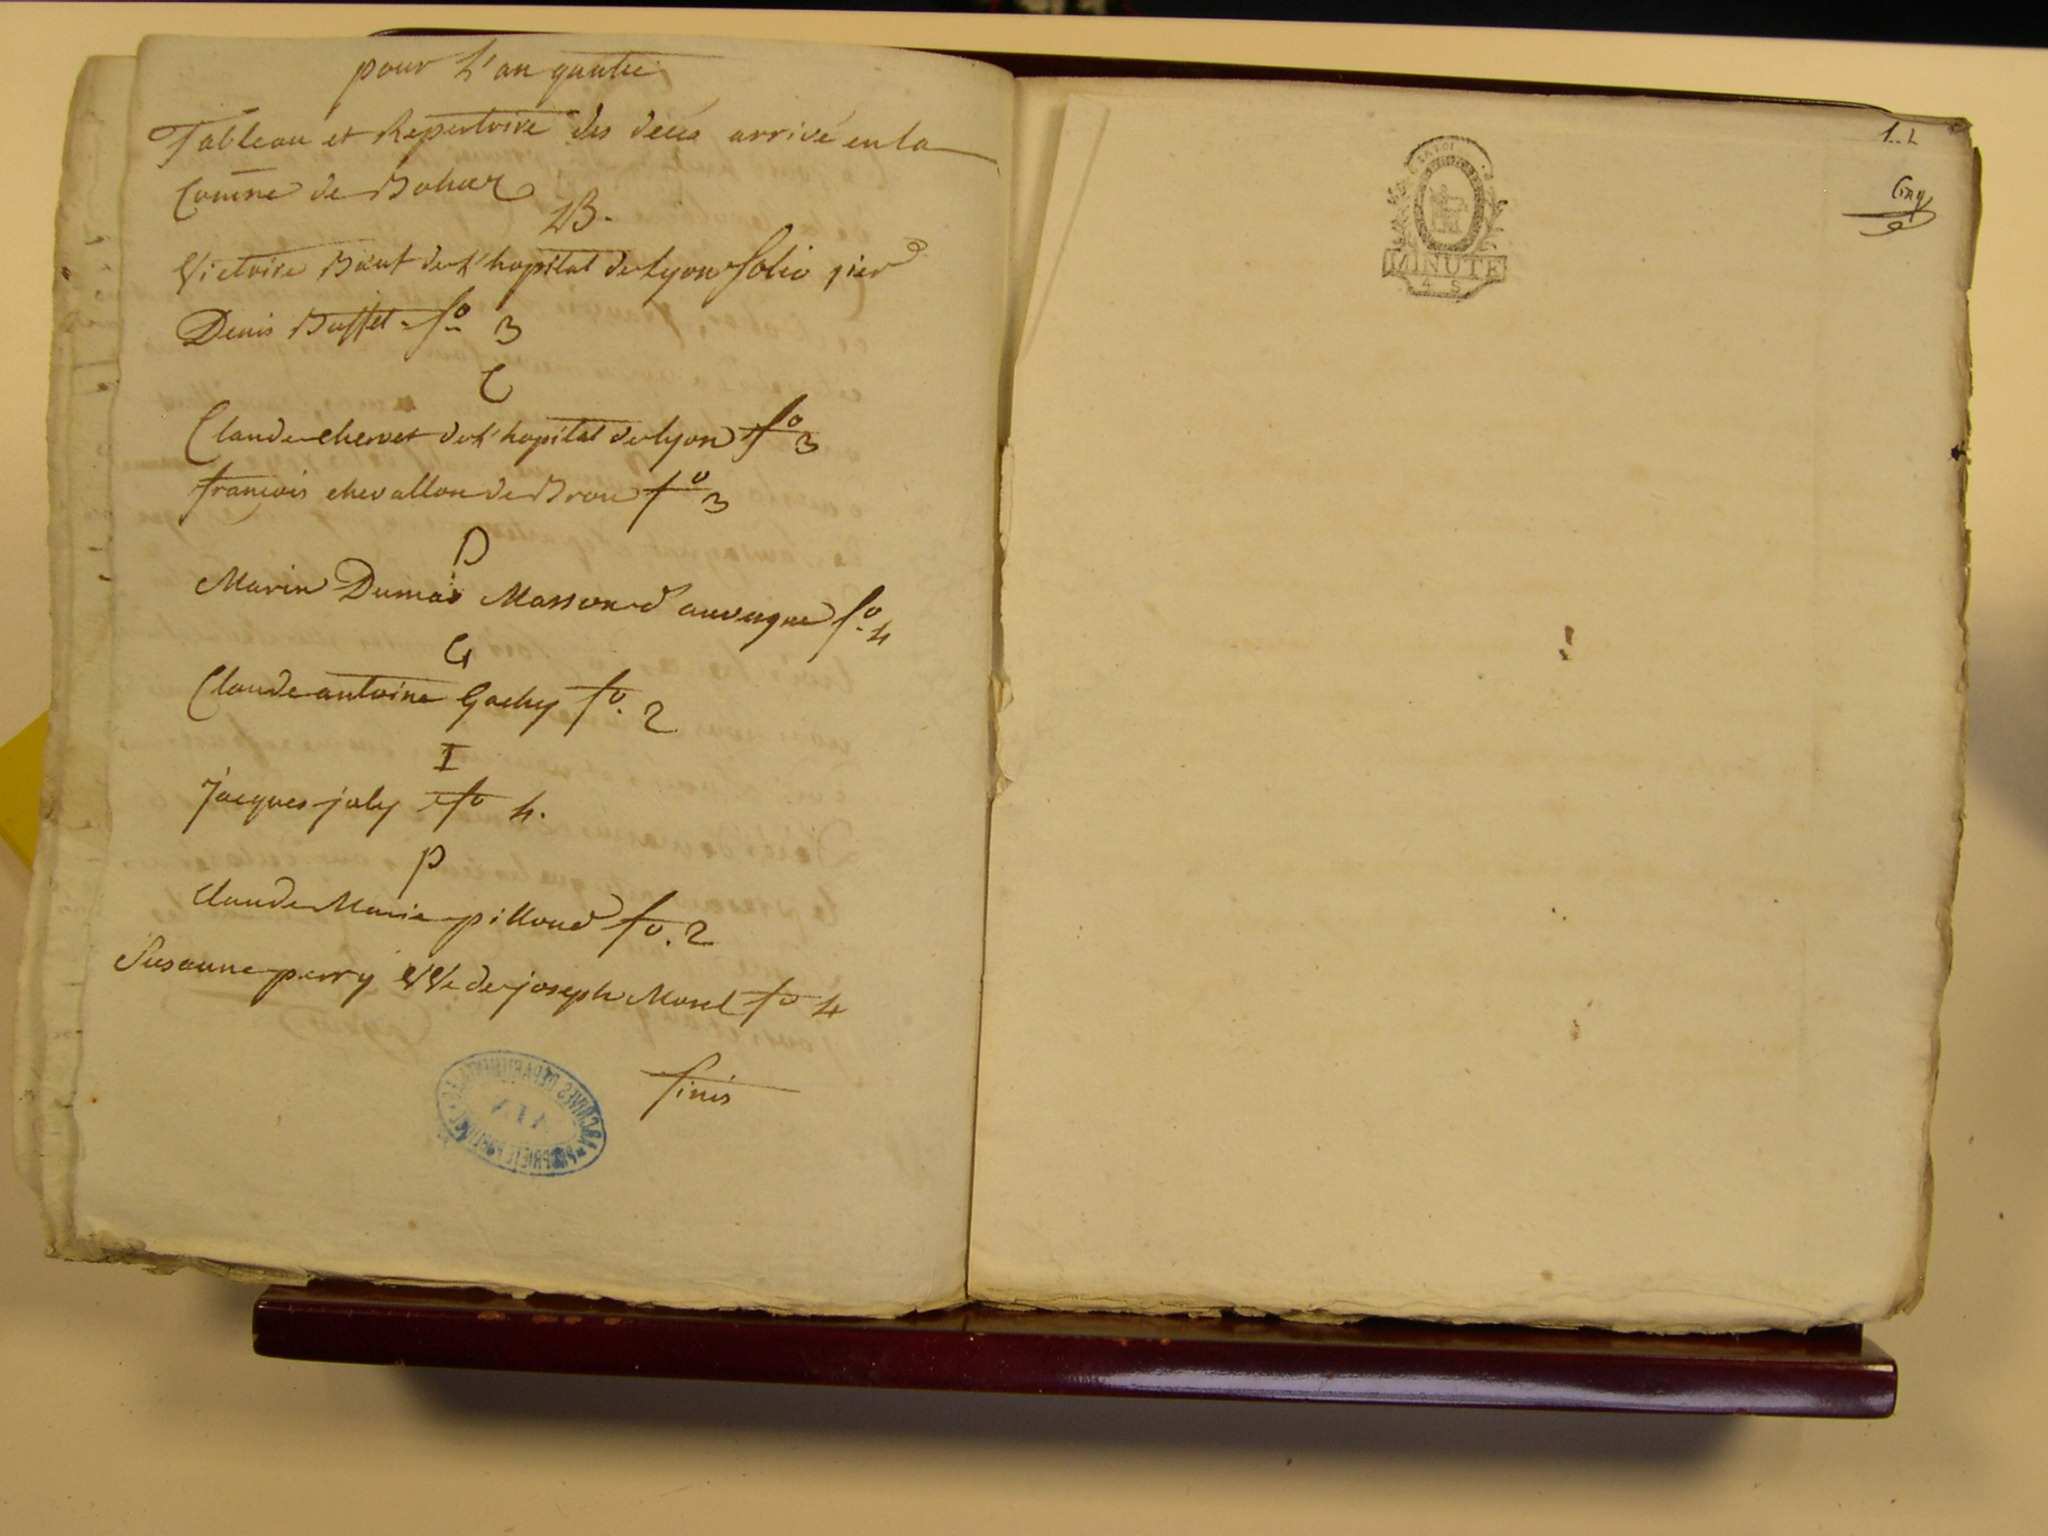 pour L'an quatre
Tableau et Repertoire des deces arrivé en la
Comune de Bohas
B.
Victoire Baut de L'hopital de Lyon folio 1ier
Denis Buffet fo 3
C
Claude chervet de L'hopital de lyon fo 3
françois chevallon de Brou fo 3
D
Marin Dumas Masson d'auvergne fo 4
G
Claude antoine Gachy fo. 2
I
Jacques joly fo 4.
P
Claude Marie pilloud fo. 2
Susanne perry VVe de joseph Morel fo 4
finis
ARCHIVES DEPARTEMENTALES
AIN
LA LOI
MINUTE
4 S
1.. L
Cinq